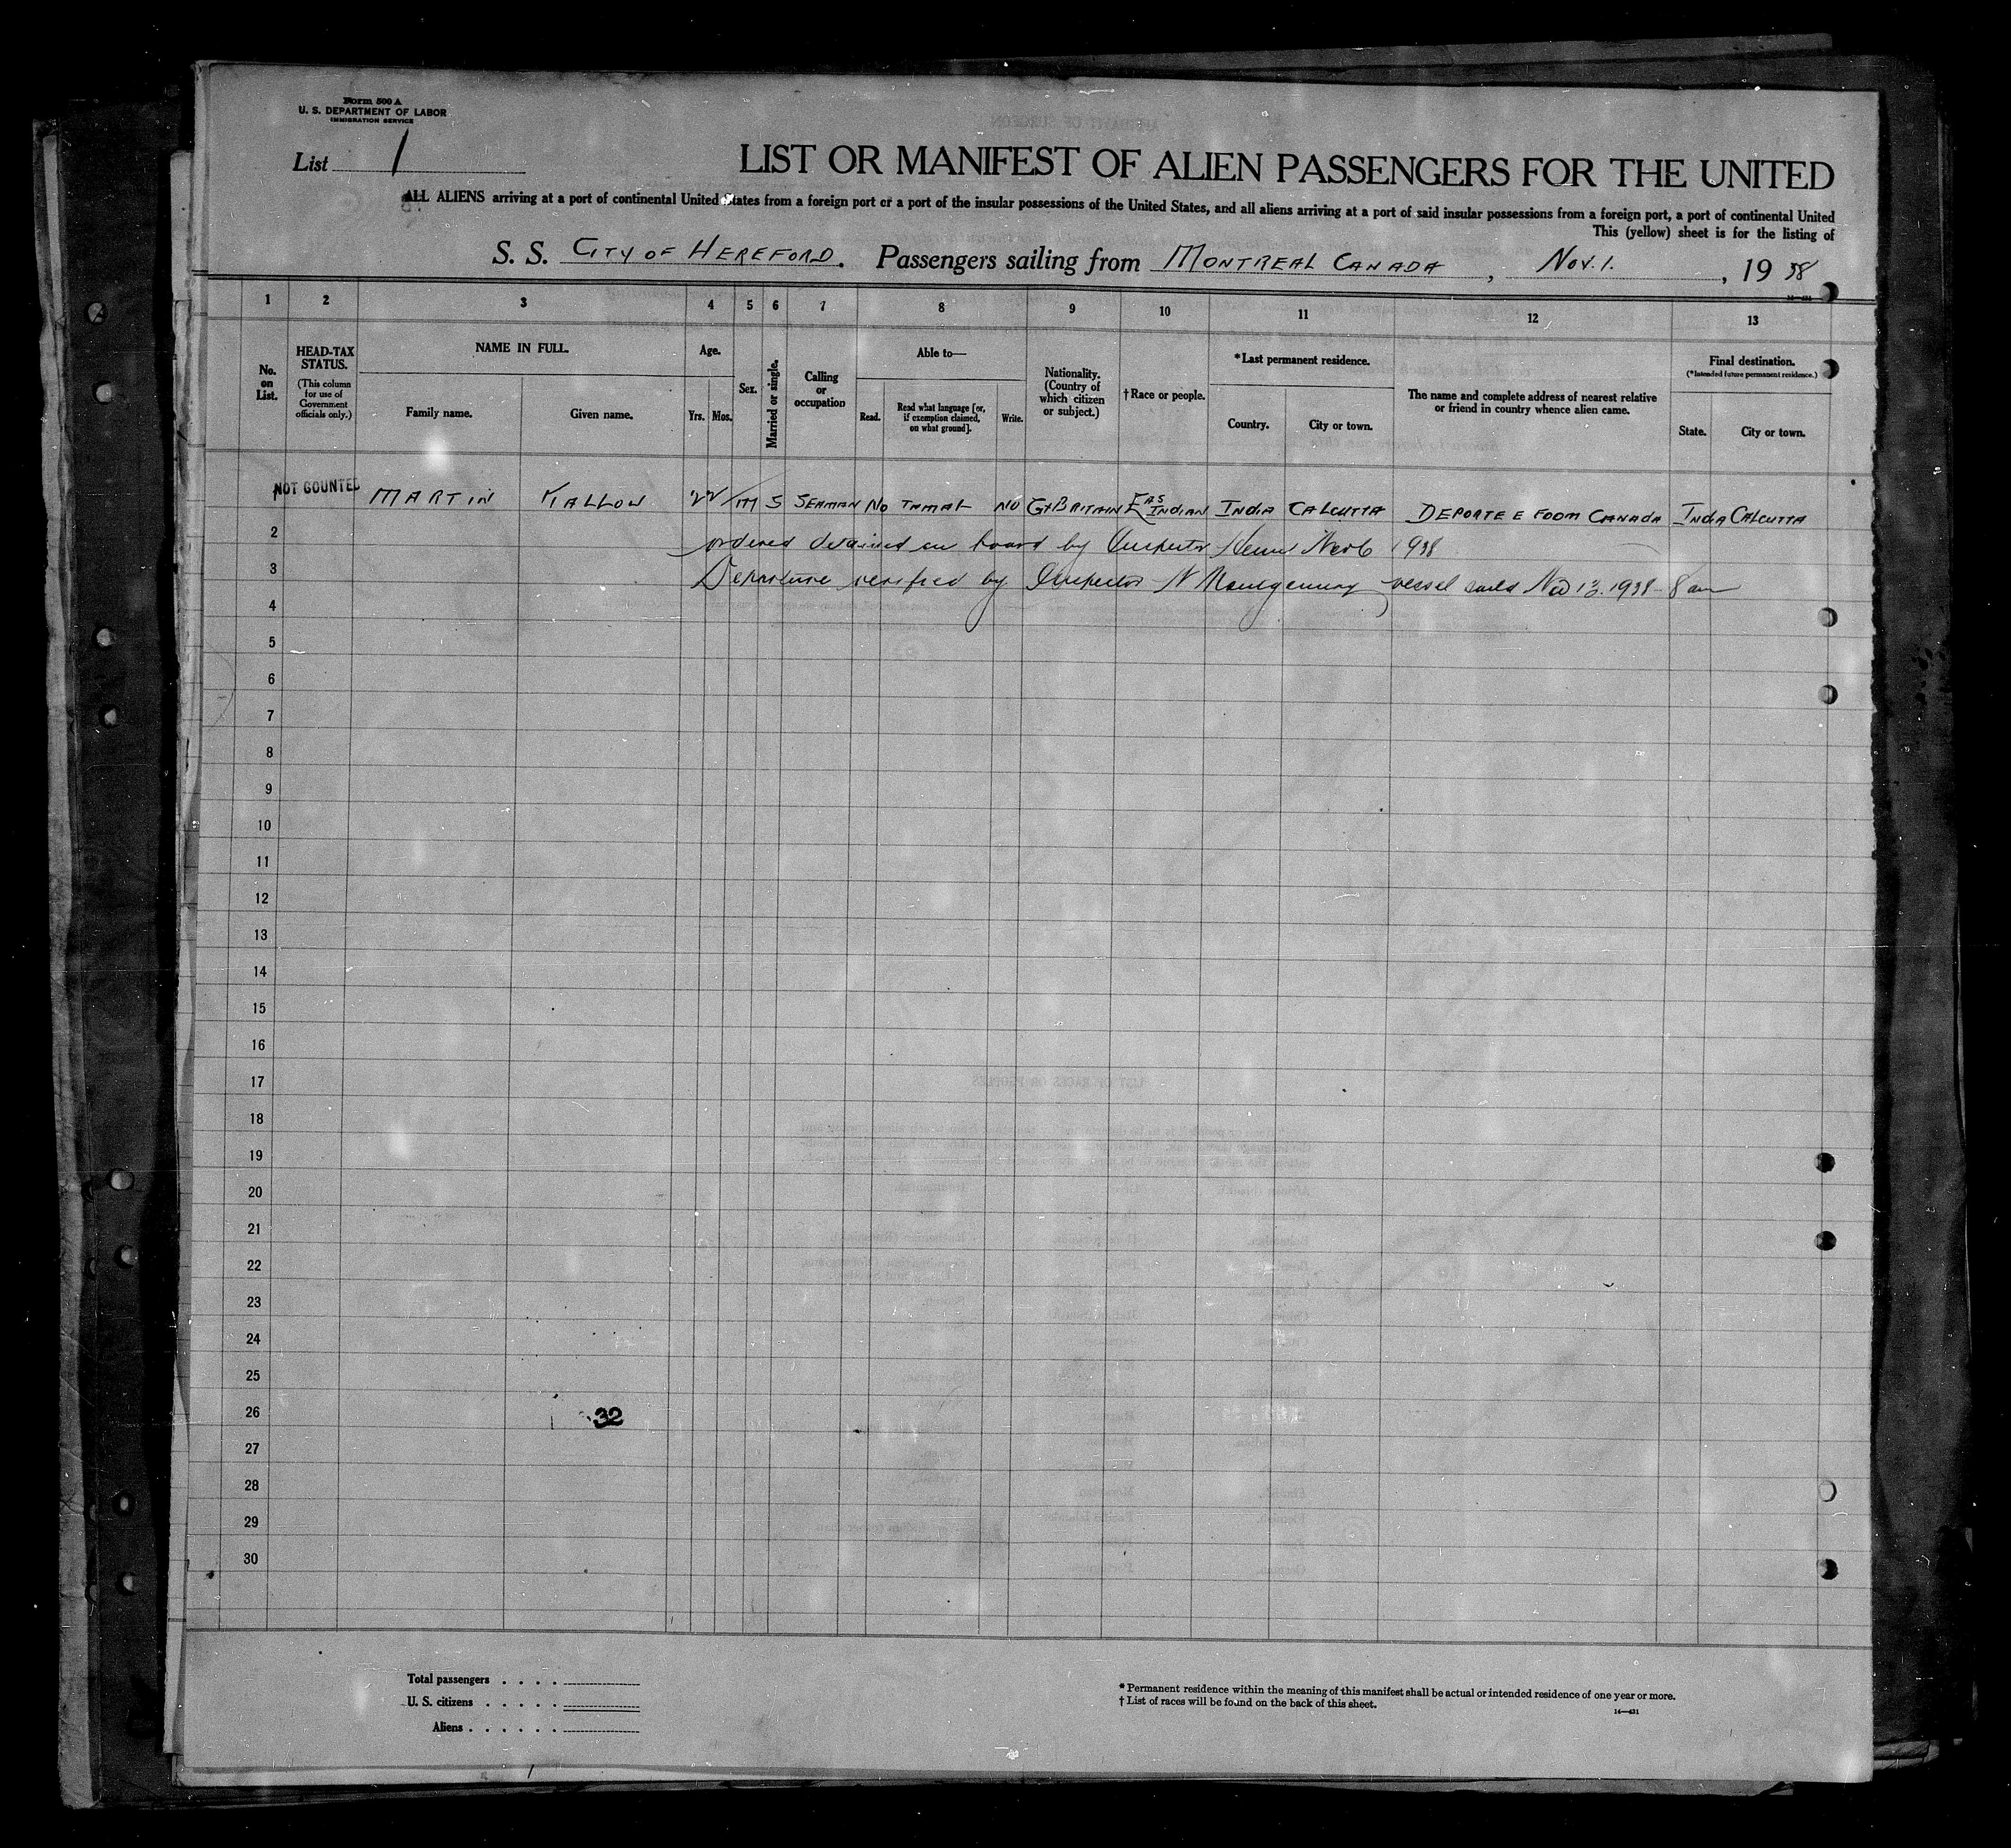 Form 500 A
U. S. DEPARTMENT OF LABOR
IMMIGRATION SERVICE
List 1
LIST OR MANIFEST OF ALIEN PASSENGERS FOR THE UNITED
ALL ALIENS arriving at a port of continental United States from a foreign port or a port of the insular possessions of the United States, and all aliens arriving at a port of said insular possessions from a foreign port, a port of continental United
This (yellow) sheet is for the listing of
S. S. CITY OF HEREFORD. Passengers sailing from MONTREAL CANADA, Nov. 1., 1938
1 2 3 4 5 6 7 8 9 10 11 12 13
No. on List.
HEAD-TAX STATUS.
(This column for use of Government officials only.)
NAME IN FULL.
Family name.
Given name.
Age.
Yrs. Mos.
Sex.
Married or single.
Calling or occupation
Able to—
Read.
Read what language [or, if exemption claimed, on what ground].
Write.
Nationality. (Country of which citizen or subject.)
† Race or people.
*Last permanent residence.
Country.
City or town.
The name and complete address of nearest relative or friend in country whence alien came.
Final destination.
(*Intended future permanent residence.)
State.
City or town.
NOT COUNTED MARTIN KALLOW 22 M S SEAMAN NO TAMAL NO GT BRITAIN EAS INDIAN INDIA CALCUTTA DEPORTEE FOOM CANADA INDIA CALCUTTA
2 ordered detained on board by Inspector Nov 6 1938
3 Departure verified by Inspector N Montgomery vessel sailed Nov 13. 1938 - 8 am
4
5
6
7
8
9
10
11
12
13
14
15
16
17
18
19
20
21
22
23
24
25
26
32
27
28
29
30
Total passengers . . . .
U. S. citizens . . . . .
Aliens . . . . . .
* Permanent residence within the meaning of this manifest shall be actual or intended residence of one year or more.
† List of races will be found on the back of this sheet.
14—431